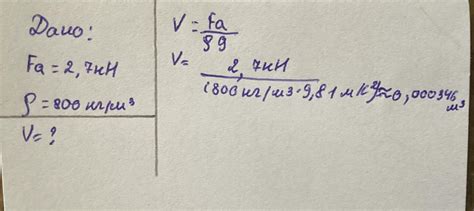 Дано:
Fa = 2,7кН
ρ = 800 кг/м³
V = ?
V = Fa
ρ g
V =
2,7кН
(800 кг/м3 · 9,81 м/с²) ≈ 0,000346
м³